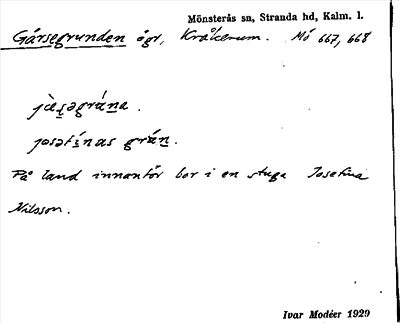 Mönsterås sn, Stranda hd, Kalm. l.
Gåsegrunden ögr, Kråkerum. Mö 667, 668
jὰsəgrάna.
josəfínas grάn.
På land innanför bor i en stuga Josefina
Nilsson.
Ivar Modéer 1929